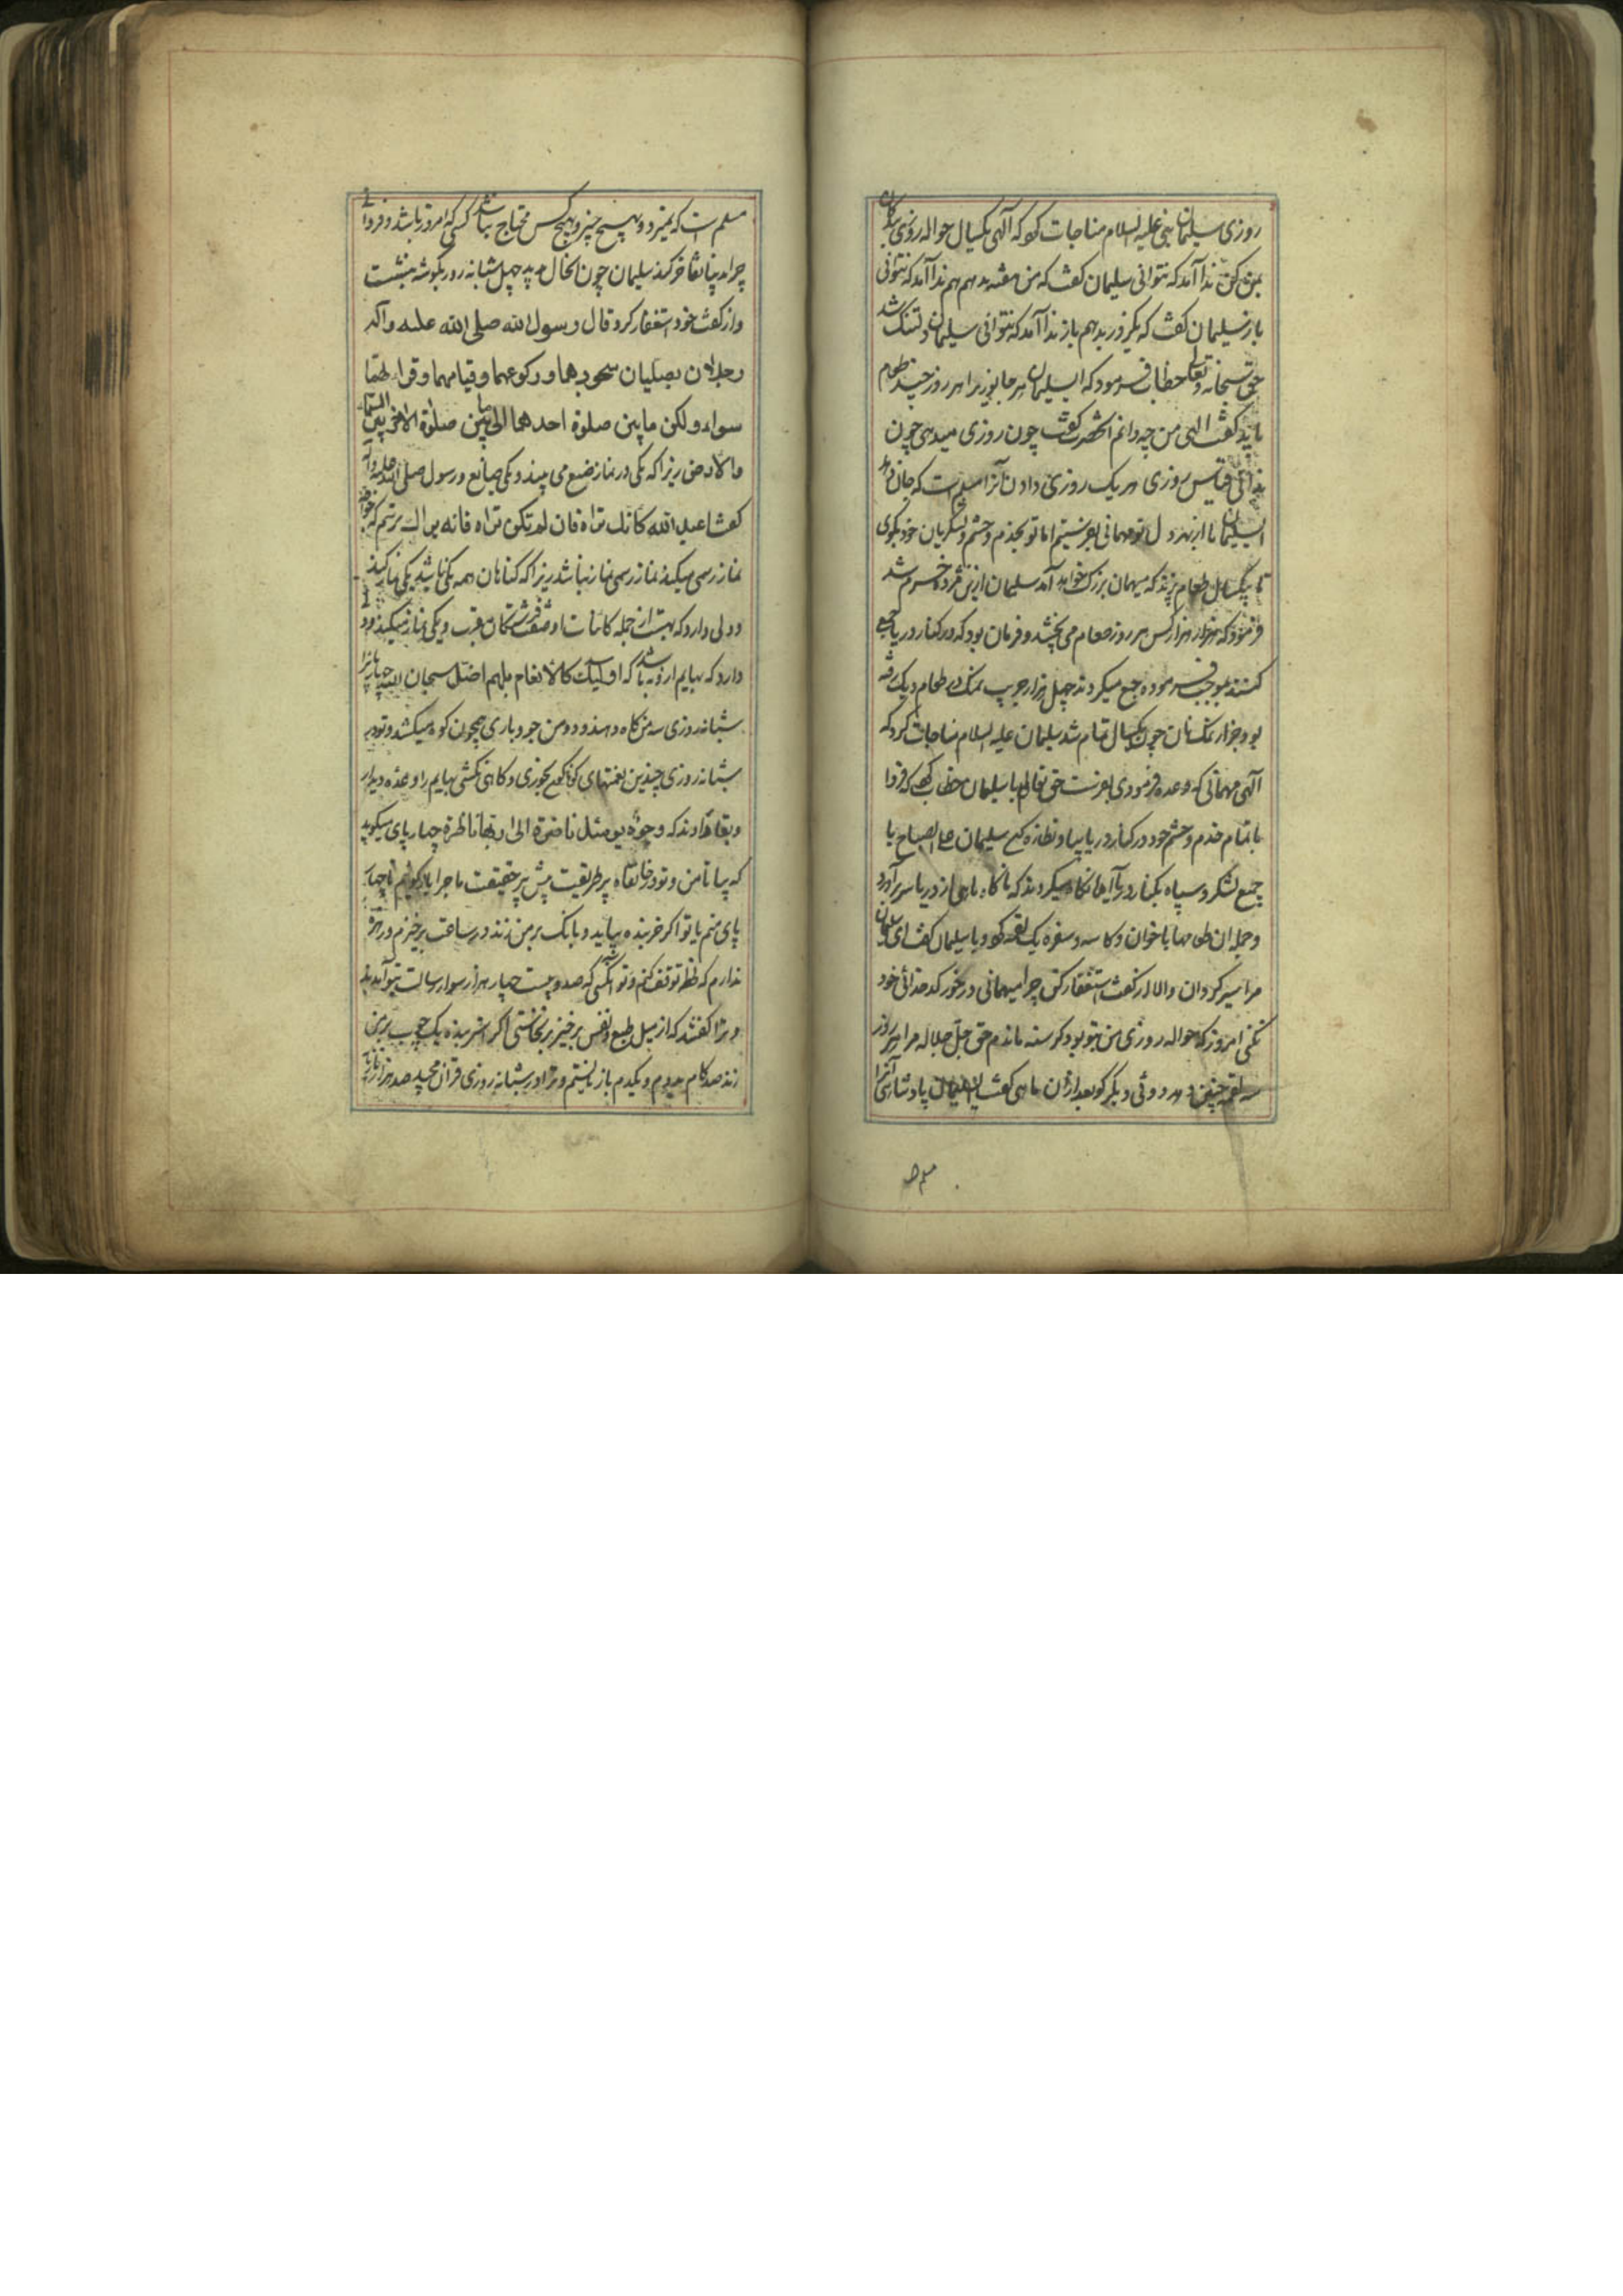 روزی سلیمان نبی علیه السلام مناجات کرد که الهی یکسال حواله روزی
بمن کن ندا آمد که نتوانی سلیمان گفت که من هفته بدهم هم ندا آمد که نتوانی
باز سلیمان گفت که یکروز بدهم باز ندا آمد که نتوانی سلیمان دلتنک شد
حق سبحانه وتعالی خطاب فرمود که ای سلیمان هر جانوریرا هر روز چند طعام
باید گفت الهی من چه دانم گفت چون روزی میدهی چون
ندانی قیاس روزی هر یک روزی دادن آنرا مسلم است که جان
ای سلیمان ما از بهر دل تو مهمانی بفرستیم اما تو بخدم وحشم ولشکریان خود بکوی
تا یکسال طعام پزند که میهمان بزرک خواهد آمد سلیمان ازین مژده خرم شد
فرمود که هزار هزار کس هر روز طعام می پختند و فرمان بود که در کنار دریا جمع
کنند بموجب فرموده جمع میکردند چهل هزار طعام دیک
بود نان چون یکسال تمام شد سلیمان علیه السلام مناجات کرد که
الهی مهمانی که وعده فرمودی بفرست حق تعالی با سلیمان خطاب کرد که فردا
با تمام خدم وحشم خود در کنار دریا بیا و نظاره کن سلیمان علی الصباح با
جمیع لشکر و سپاه بکنار دریا آمد نکاه میکردند که ناکاه ماهی از دریا سر برآورد
و جمله ان طعامها با خوان و کاسه و سفره یک لقمه کرد و با سلیمان گفت ای سلیمان
مرا سیر کردان والا از گفت استغفار کن چرا میهمانی در خور خدائی خود
نکنی امروز که حواله روزی من بتو بود کرسنه ماندم حق جل جلاله مرا هر روز
سه لقمه چنین دهد دیگر کو بعد از ان ماهی گفت ای سلیمان پادشاهی آنرا
مسلم
مسلم است که نمیرد و بهیچ چیز و بهیچ کس محتاج نباشد کسی که امروز باشد و فردا نه
چرا بدینها تفاخر کند سلیمان چون انحال دید چهل شبانه روز بگوشه بنشست
و از گفت خود استغفار کرد قال رسول الله صلی الله علیه وآله
رجلان یصلیان سجودهما ورکوعهما وقیامهما وقراءتهما
سواء ولکن ما بین صلوة احدهما الی ما بین صلوة الاخر بین السماء
والارض زیرا که یکی در نماز صنع می بیند و یکی صانع و رسول صلی الله علیه وآله
گفت اعبد الله کانک تراه فان لم تکن تراه فانه یراک
نماز رسمی میکند نماز رسمی نماز نباشد زیرا که همه یکی باشد یکی نماز کند
و دلی دارد که بهتر از جمله کائنات او صفت فرشتکان مقرب و یکی نماز میکند و دلی
دارد که بهایم ازو به باشد که اولئک کالانعام بل هم اضل سبحان الله چهارپا را
شبانه روزی سه من کاه دهند و دو من جو و باری همچون کوه میکشد و تو در
شبانه روزی چندین نعمتهای کوناکون بخوری و کاهی نکشی بهایم را وعده دیدار
و بقا ندادند که وجوه یومئذ ناضرة الی ربها ناظرة چهارپای میکوید
که بیا تا من و تو در خانقاه پیر طریقت پیش پیر حقیقت ماجرا بکوئیم تا چهار
پای منم یا تو اگر خربنده بیاید و بانک بر من زند در ساعت برخیزم و زهره
ندارم که لحظه توقف کنم و تو انکسی که صد و بیست و چهار هزار سوار رسالت بتو آمدند
و ترا گفتند که از میل طبع و نفس برخیز برنخاستی اگر خربنده یک چوب بر من
زند صد کام بدوم و یکدم باز نایستم و ترا در شبانه روزی قران مجید صد هزار تازیانه